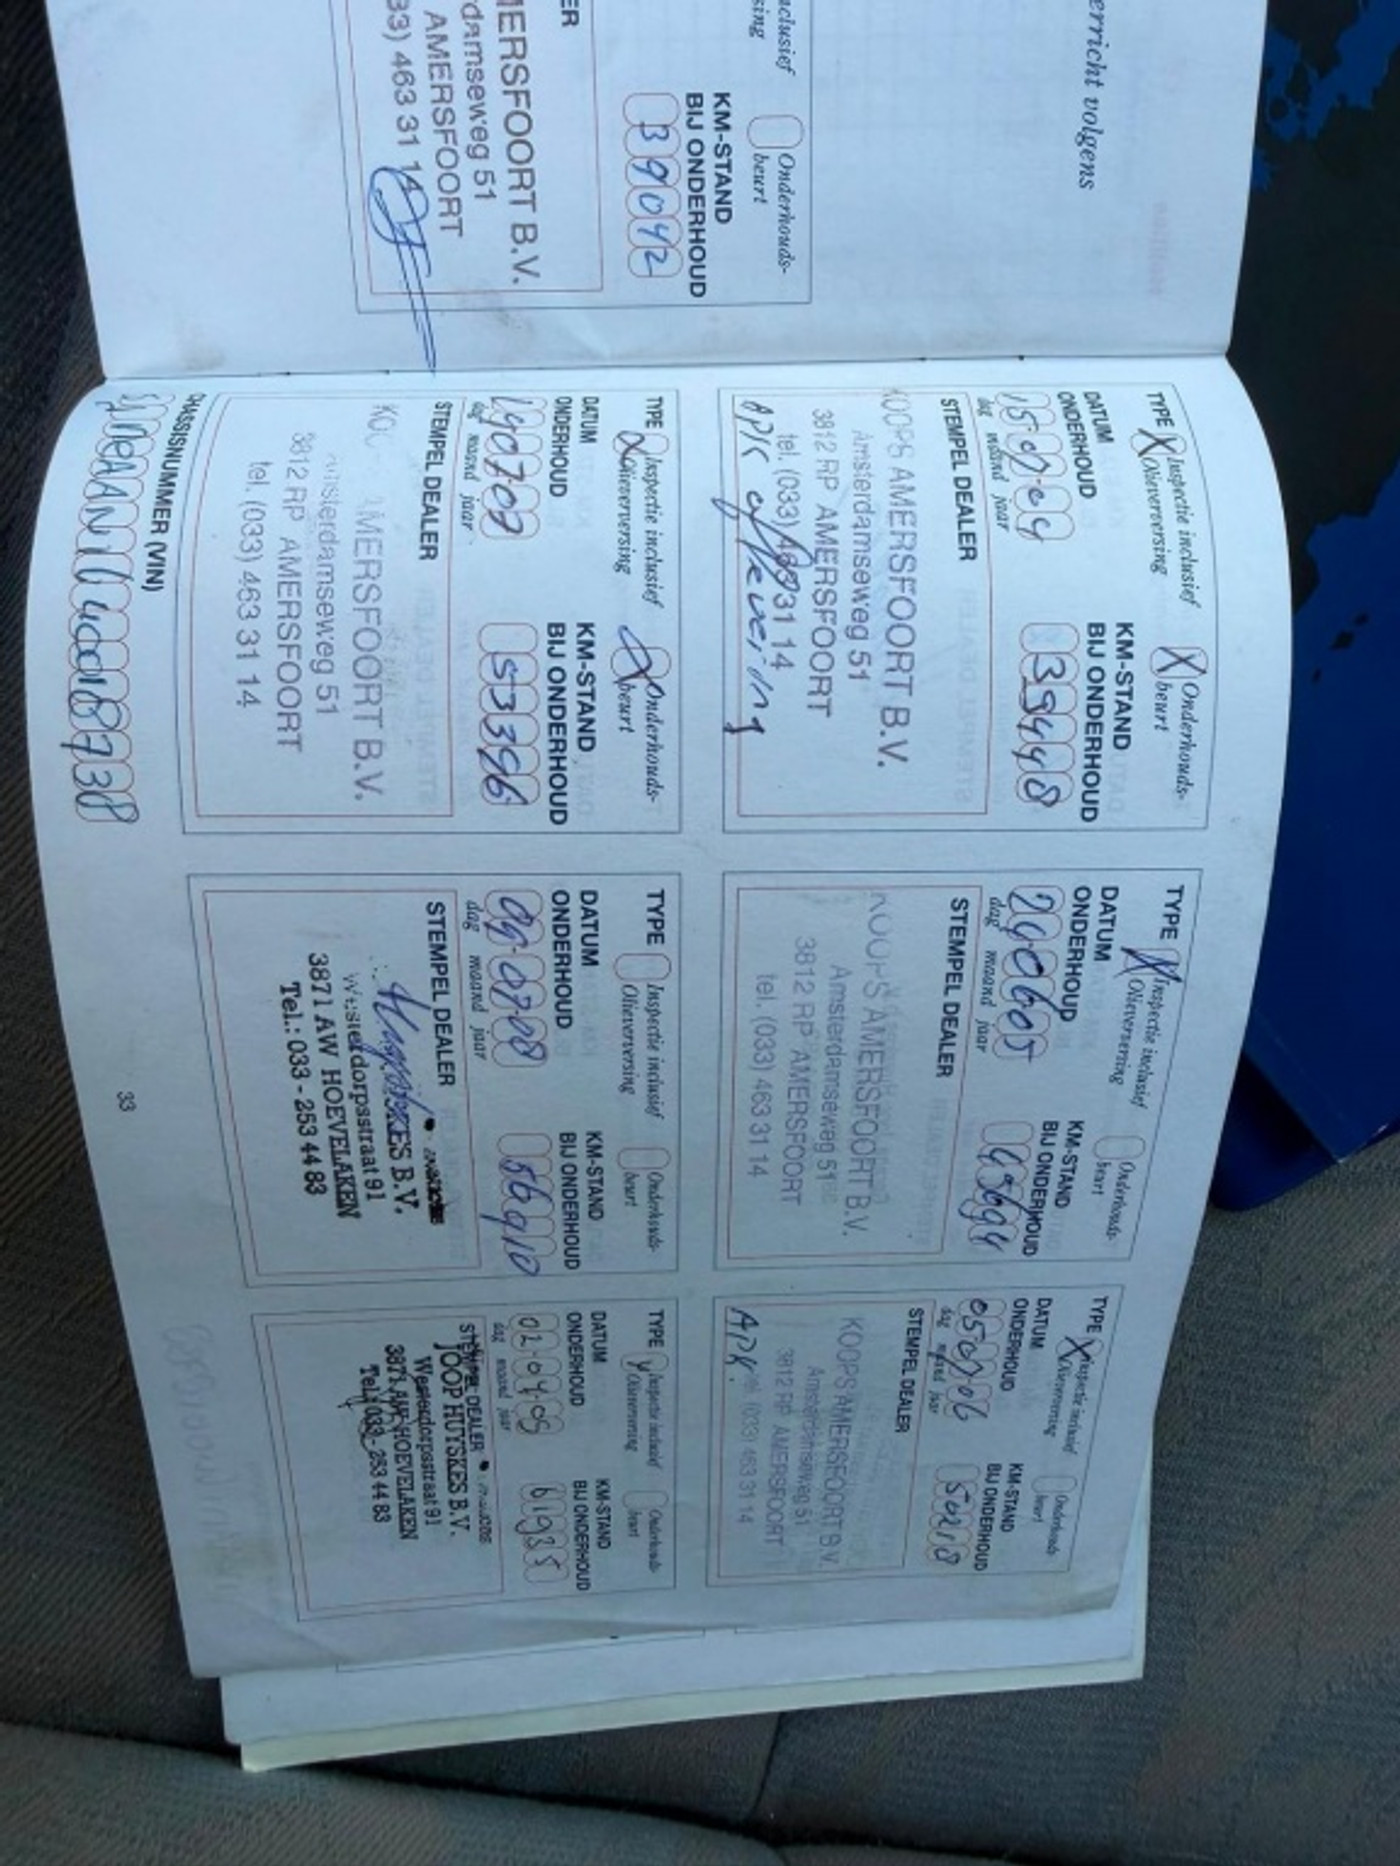 erricht volgens
nclusief
sing
Onderhouds-
beurt
KM-STAND
BIJ ONDERHOUD
39042
ER
MERSFOORT B.V.
rdamseweg 51
AMERSFOORT
33) 463 31 14
TYPE X Inspectie inclusief
Olieverversing
X Onderhouds-
beurt
DATUM
ONDERHOUD
KM-STAND
BIJ ONDERHOUD
dag maand jaar
STEMPEL DEALER
KOOPS AMERSFOORT B.V.
Amsterdamseweg 51
3812 RP AMERSFOORT
tel. (033) 463 31 14
APK
TYPE X Inspectie inclusief
Olieverversing
Onderhouds-
beurt
DATUM
ONDERHOUD
KM-STAND
BIJ ONDERHOUD
dag maand jaar
STEMPEL DEALER
KOOPS AMERSFOORT B.V.
Amsterdamseweg 51
3812 RP AMERSFOORT
tel. (033) 463 31 14
TYPE X Inspectie inclusief
Olieverversing
Onderhouds-
beurt
DATUM
ONDERHOUD
05-07-06
KM-STAND
BIJ ONDERHOUD
50218
dag maand jaar
STEMPEL DEALER
KOOPS AMERSFOORT B.V.
Amsterdamseweg 51
3812 RP AMERSFOORT
(033) 463 31 14
APK
TYPE X Inspectie inclusief
Olieverversing
X Onderhouds-
beurt
DATUM
ONDERHOUD
190707
KM-STAND
BIJ ONDERHOUD
53396
dag maand jaar
STEMPEL DEALER
AMERSFOORT B.V.
Amsterdamseweg 51
3812 RP AMERSFOORT
tel. (033) 463 31 14
TYPE Inspectie inclusief
Olieverversing
Onderhouds-
beurt
DATUM
ONDERHOUD
KM-STAND
BIJ ONDERHOUD
56910
dag maand jaar
STEMPEL DEALER
B.V.
Westerdorpsstraat 91
3871 AW HOEVELAKEN
Tel.: 033 - 253 44 83
TYPE Inspectie inclusief
Olieverversing
Onderhouds-
beurt
DATUM
ONDERHOUD
KM-STAND
BIJ ONDERHOUD
61935
dag maand jaar
STEMPEL DEALER
JOOP HUYSKES B.V.
Westerdorpsstraat 91
3871 AW HOEVELAKEN
Tel.: 033 - 253 44 83
CHASSISNUMMER (VIN)
33